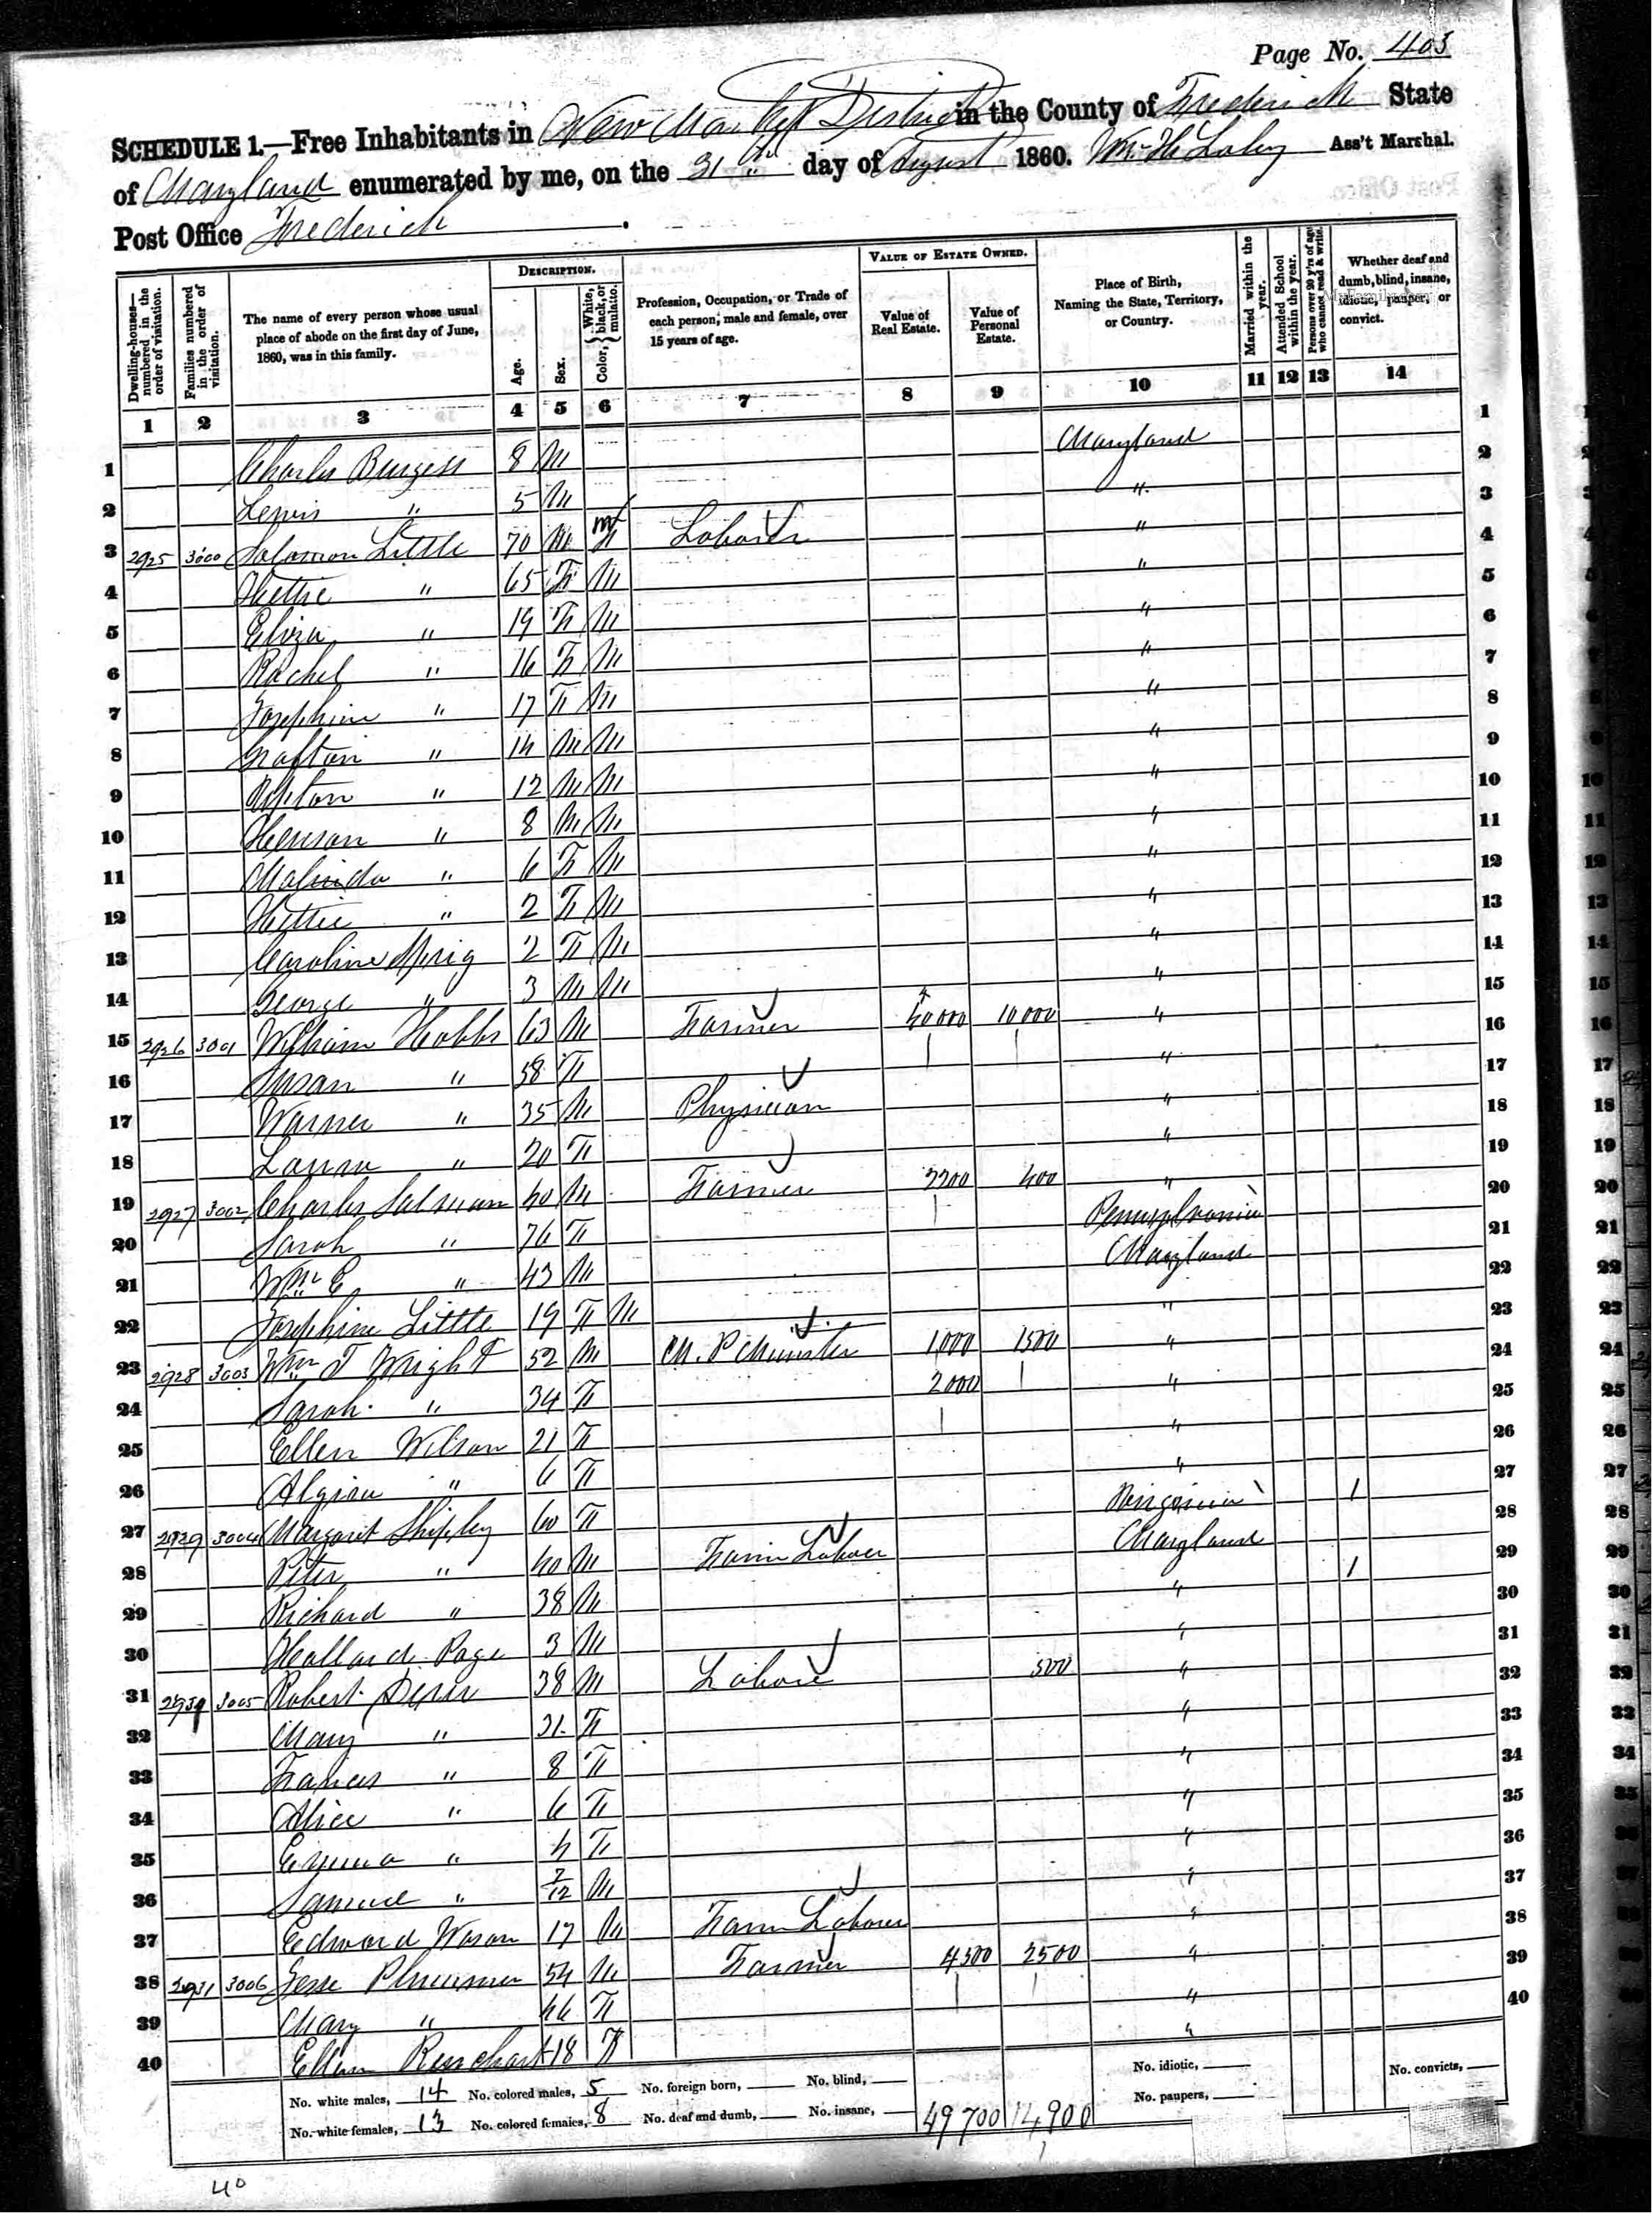 Page No. 403
SCHEDULE 1.—Free Inhabitants in New Market District in the County of Frederick State
of Maryland enumerated by me, on the 31st day of August 1860. Wm. H. Ass't Marshal.
Post Office Frederick.
Dwelling-houses—numbered in the order of visitation. Families numbered in the order of visitation. The name of every person whose usual place of abode on the first day of June, 1860, was in this family. DESCRIPTION. Age. Sex. Color, {White, black, or mulatto. Profession, Occupation, or Trade of each person, male and female, over 15 years of age. VALUE OF ESTATE OWNED. Value of Real Estate. Value of Personal Estate. Place of Birth, Naming the State, Territory, or Country. Married within the year. Attended School within the year. Persons over 20 y'rs of age who cannot read & write. Whether deaf and dumb, blind, insane, idiotic, pauper, or convict.
1 2 3 4 5 6 7 8 9 10 11 12 13 14
1 Charles Burgess 8 M Maryland 1
2 Lewis " 5 M " 2
3 2925 3000 Solomon Little 70 M M Laborer " 3
4 Hettie " 65 F M " 4
5 Eliza " 19 F M " 5
6 Rachel " 16 F M " 6
7 Josephine " 17 F M " 7
8 Grafton " 14 M M " 8
9 Upton " 12 M M " 9
10 Henson " 8 M M " 10
11 Malinda " 6 F M " 11
12 Hettie " 2 F M " 12
13 Caroline 2 F M " 13
14 George " 3 M M " 14
15 2926 3001 William Hobbs 63 M Farmer 40000 10000 " 15
16 Susan " 58 F " 16
17 Warner " 35 M Physician " 17
18 Laura " 20 F " 18
19 2927 3002 Charles Salman 40 M Farmer 2200 400 " 19
20 Sarah " 76 F Pennsylvania 20
21 Wm E " 43 M Maryland 21
22 Josephine Little 19 F M " 22
23 2928 3003 Wm T Wright 52 M M. P Minister 1000 1500 " 23
24 Sarah " 34 F 2000 " 24
25 Ellen Wilson 21 F " 25
26 " 6 F " 26
27 2929 3004 Margaret Shipley 60 F Virginia 1 27
28 Peter " 40 M Farm Laborer Maryland 28
29 Richard " 38 M " 1 29
30 Page 3 M " 30
31 3005 Robert 38 M Laborer 500 " 31
32 Mary " 31 F " 32
33 Frances " 8 F " 33
34 Alice " 6 F " 34
35 Emma " 4 F " 35
36 Samuel " 7/12 M " 36
37 Edward Wason 17 M Farm Laborer " 37
38 2931 3006 Jesse Plummer 54 M Farmer 4500 2500 " 38
39 Mary " 46 F " 39
40 Ellen 18 F " 40
No. white males, 14 No. colored males, 5 No. foreign born, No. blind, No. idiotic, No. convicts,
No. white females, 13 No. colored females, 8 No. deaf and dumb, No. insane, 49700 14900 No. paupers,
40